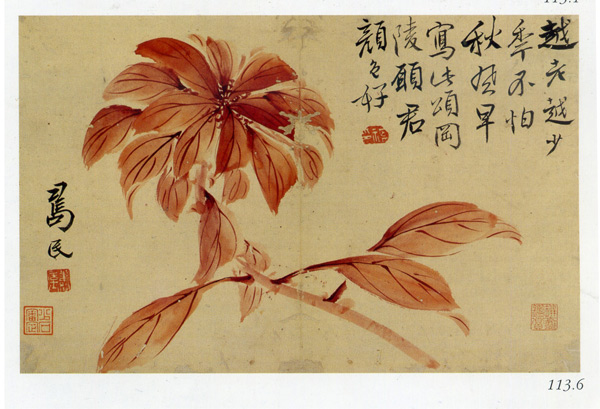 113.1
越老越少
秊不怕
秋 早
寫此頌岡
陵願君
顏色好
民
113.6